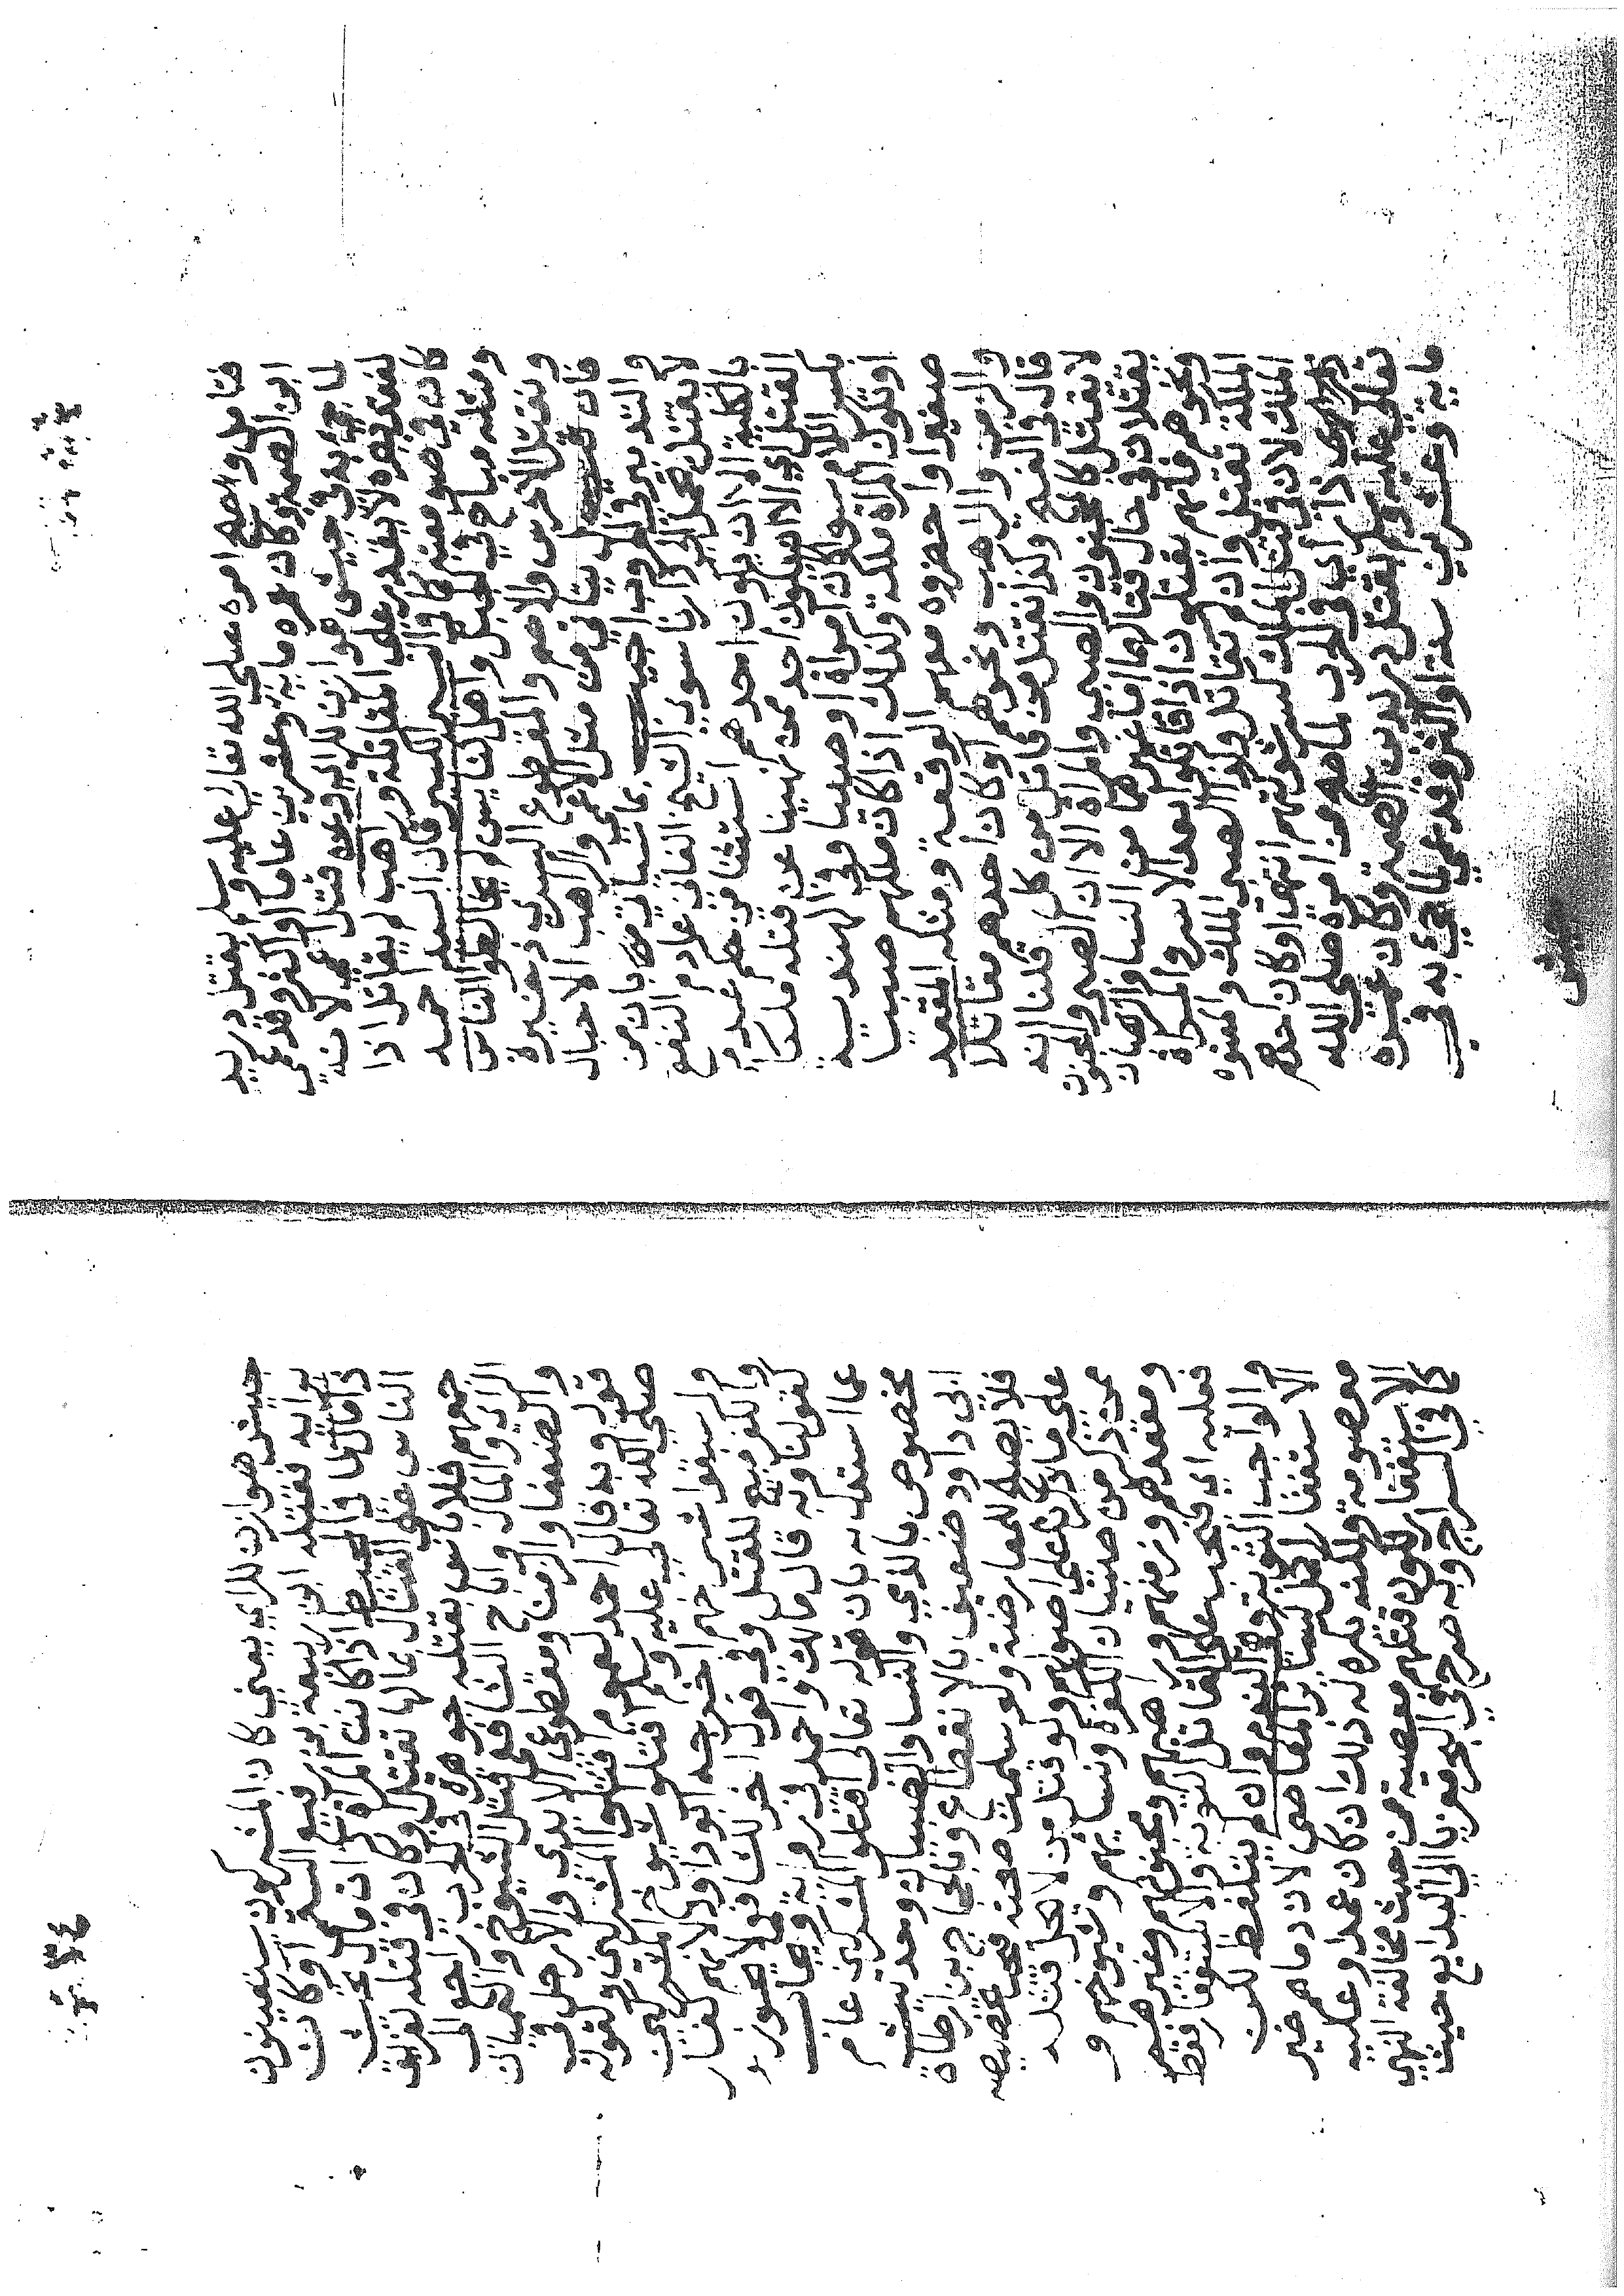 فتامل وصح امره صلي الله تعالي عليه وسلم بقتل دريد
ابن الصمة وكان عمره ماية وعشرين عاما او اكثر وقد عمي
لما جئ به في جيش هوازن للراي وعندي قتل عمي لانه
لفقد بصره لا يقدر علي المقاتلة وراهب لم يقاتل اذا
كان في صومعته كما في السير الكبير قال السيد احمد
ومثله سياح في الجبل واهل كنايس لم يخالطوا الناس
ونقتل الاخرس والاصم والمقطوع اليسري ذخيرة
فان قيل من مثل الاعمي والراهب الاحبال
والتدبير في الحروب اجيب بما سياتي بان من
لا يقتل يحمل الي دارنا سوي الشيخ الفاني عادم النفع
بالكلية الا ان يكون احدهم استثنا من عدم
القتل اي الا ان يكون احد ممن نهينا عن قتله ملكا
بكسر اللام سوا كان امراة او صبيا وفي الهندية
او تكون المراة ملكة وكذلك اذا كان ملكهم صبيا
صغيرا واحضروه معهم الوقعة ومثله المقعد
والزمن والراهب ونحوهم او كان احدهم مقاتلا
قال في الفتح وكذا نقتل من قاتل من كل قلنا انه
لا يقتل كالمجنون والصبي والمراة الا ان الصبي والمجنون
يقتلان في حال قتالهما اما غيرهما من النسا والرهبان
ونحوهم فانهم يقتلون اذا قاتلوا بعد الاسر والمراة
الملكة تقتل وان لم تقاتل وكذا الصبي الملك والمعتوه
الملك لان في قتل الملك كسر شوكتهم انتهي او كان احدهم
ذا راي في الحرب لما صح من امره صلي الله
تعالي عليه وسلم بقتل دريد بن الصمة وكان عمره
ماية وعشرين سنة او اكثر وقد عمي لما جئ به في
جيش
جيش هوازن للراي يعني كان المشركون يستعينون
برايه فقتله ابن ربيعة بن رفيع السلمي او كانت
ذا مال لما في المحيط اذا كانت المراة ذات مال تحث
الناس علي القتال بمالها تقتل وكان في قتله تفريق
جمعهم فلا باس بقتله جوهرة في الحرب راجع الي
الراي والمال واباح الشافعي قتل الشيوخ والعميان
والضعفا والزمنا ومقطوعي الايدي والارجل في
قول وبه قال احمد لعموم اقتلوا المشركين ولقوله
صلي الله تعالي عليه وسلم اقتلوا شيوخ المشركين
واستبقوا شرخهم اخرجه ابو داود ولانهم كفار
والكفر مبيح للقتل وفي قول اخر للشافعي لا يجوز
كقولنا وبه قال مالك واحمد في رواية ويجاب
عما استدل به بان قوله تعالي اقتلوا المشركين عام
مخصوص بالذمي والنسا والصبيان وحديث
ابي داود ضعيف بالانقطاع وبالحجاج بن ارطاة
فلا يصلح للمعارضة ولو سلمت صحته فيجب تخصيصه
علي ما ذكر علي اصولهم ولو قتل من لا يحل قتله
ممن ذكر من صبيان الكفرة ونسايهم وشيوخهم و
ومقعدهم وزمنهم وراهبهم ومجنونهم وغيرهم
فعليه اي فيجب علي القاتل التوبة والاستغفار فقط
والواجب التوبة وهي الندم وان لم يتلفظ لكن
الاستغفار اصل لساير المعاصي لان دماهم غير
معصومة ولكنه يكره له ذلك ان كان عمدا وعليه
الاستغفار لكون قتلهم معصية من حيث مخالفة النهي
كما في السراج وبه صرح في البحر معزيا الي البدايع حيث